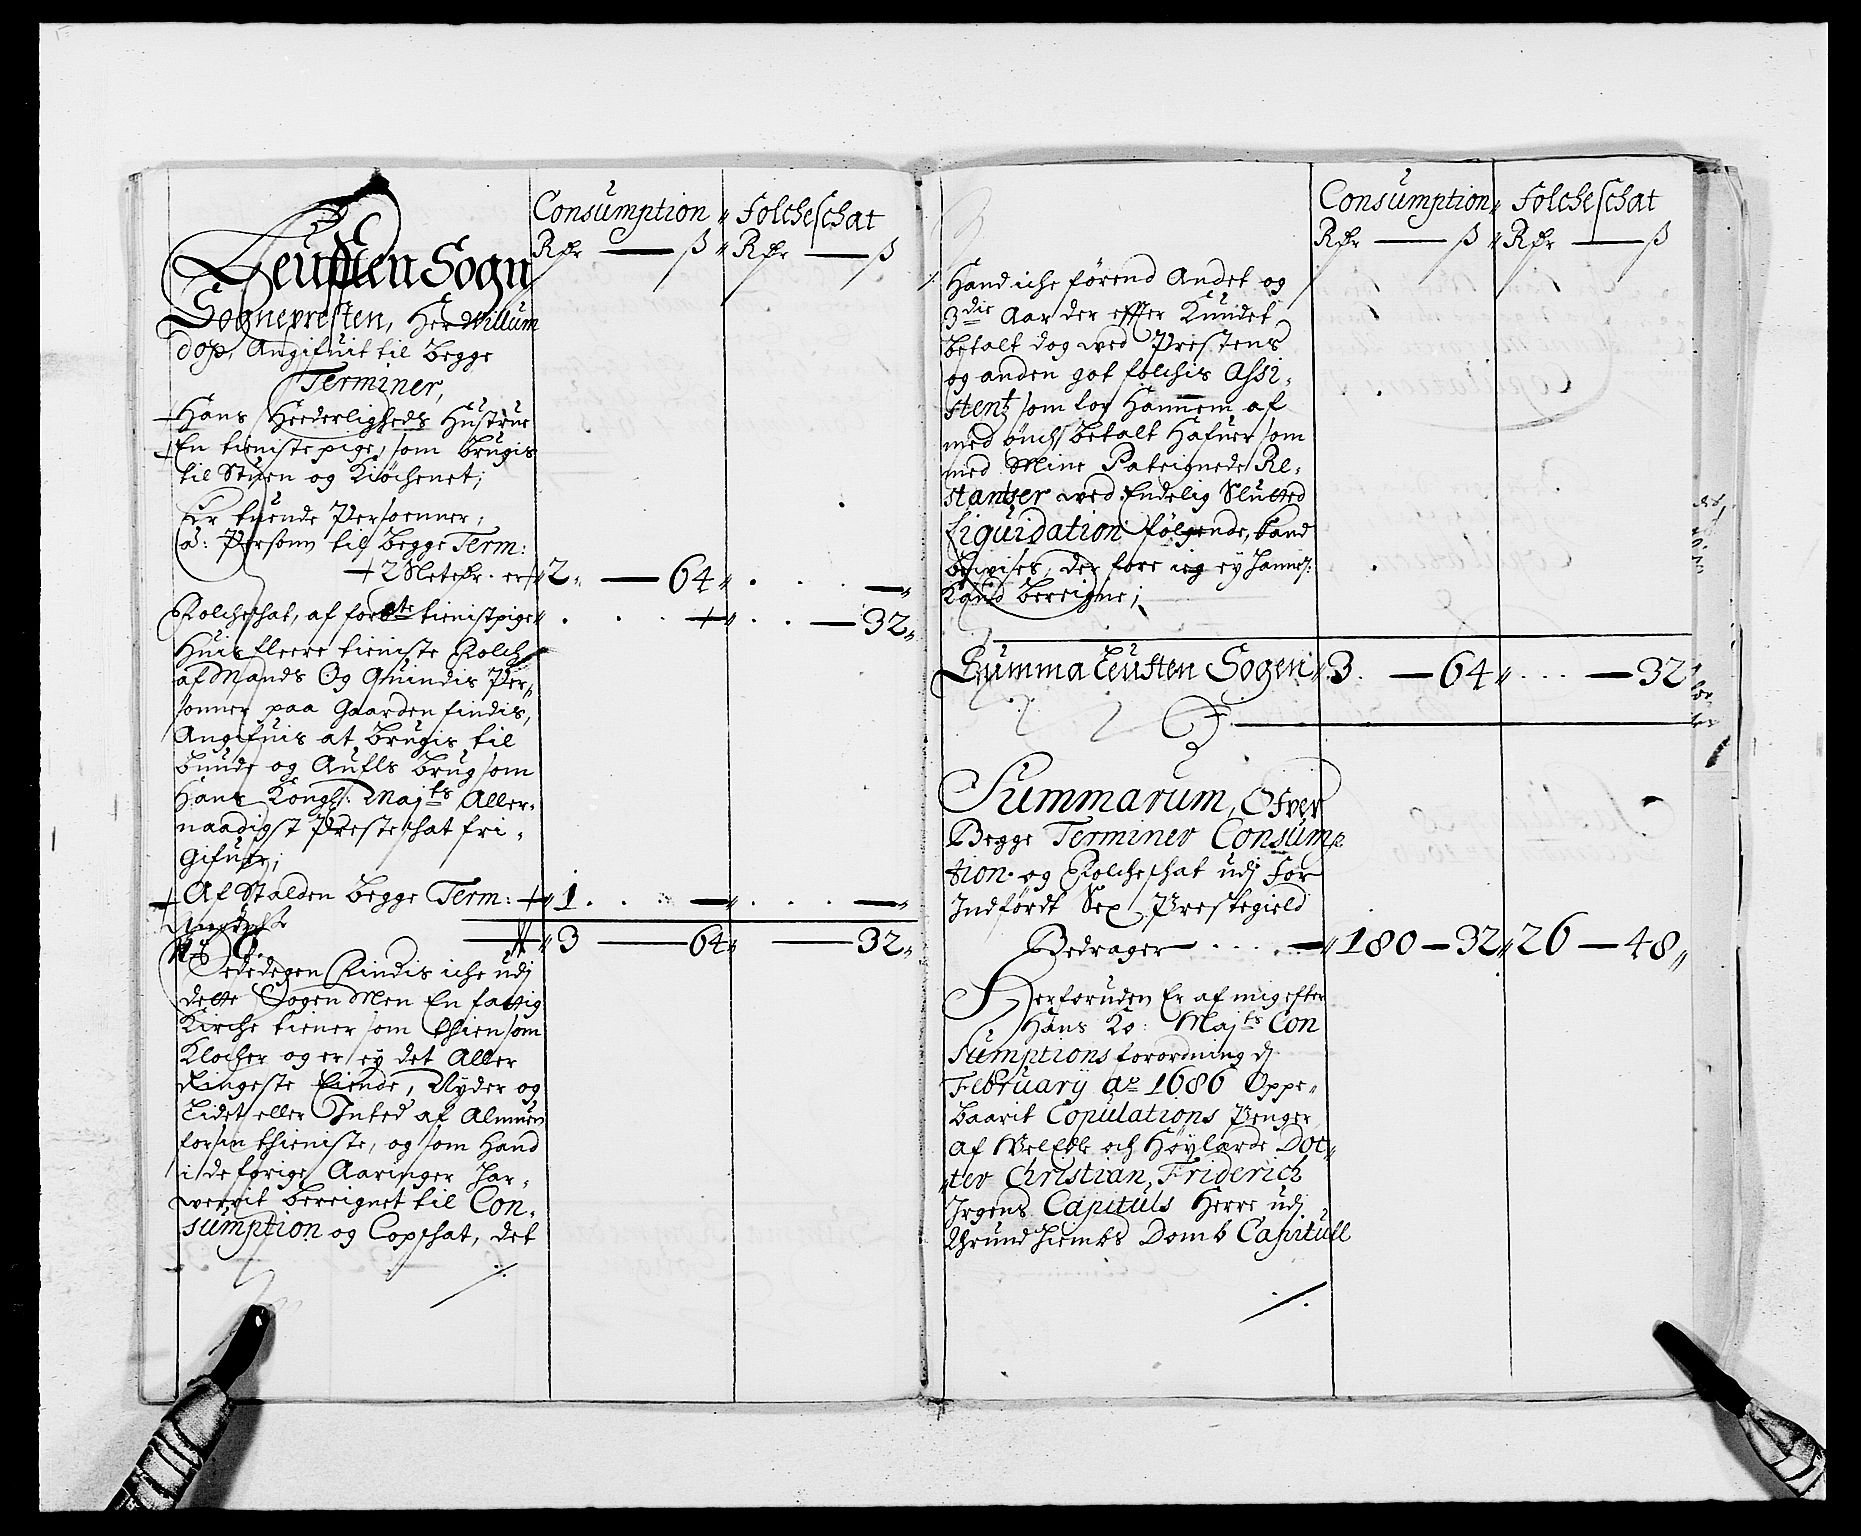 Consumption „ Folcheschat
Rdr — ß „ Rdr — ß
Leusten Sogn
Sognepresten, Her Willum
dop, Angifuit til Begge
Terminer,
Hans Hæderligheds Hustrue
En tieniste pige, som brugis
til Stuen og Kiøchenet;
Er tuende Persoenner,
a: Persohn til begge Term:
2 Sletedr. er „ 2 „ — 64 „ . . . — „
Folcheschat, af forbte tienistpige „ . . . „ . . — 32 „
Huis fleere tieniste Folch
af Mands Og Quindis Per„
sonner paa Gaarden findis,
Angifuis at brugis til
bunde og Aufls brug som
Hans Kongl: Majts Aller„
naadigst Presteschat fri„
Gifuer;
Af Stalden begge Term: „ 1 . . . — „ . . . — „
„ 3 — 64 „ — 32 „
Sededegen Findis iche udj
dette Sogen Men En fattig
Kirche tiener som thien som
Klocher og er ey det Aller
Ringeste tiende, Nyder og
Lidet eller Inted af Almuen
for sin thieniste, og som Hand
i de forige Aaringer har„
werrit bereignet til Con„
sumption og Copschat, det
./.
Consumption „ Folcheschat
Rdr — ß „ Rdr — ß
Hand iche førend Andet og
3die Aar der effter Kundet
betalt dog wed Prestens
og anden got folchis Assi„
stentz som lov Hannem af
med ønch betalt Hafuer som
med Mine Re„
stantzer wed Endelig Slutted
Liquidation følgende, kand
bevises, der fore ieg ey hannem
Kand bereigne;
Summa Leusten Sogen „ 3 . — 64 „ . . . — 32
Summarum, Ofver
Begge Terminer Consump
tion og Folcheschat udj For
Indførdt Sex Prestegield
Bedrager — . . . — „ 180 — 32 „ 26 — 48 „
Herforuden Er af mig efter
Hans Ko: Majts Con
sumptions forordning dj
February ao 1686 Oppe„
baarit Copulations Penger
af WelEdle och Høylærde Doc„
„ter Christian, Friderich
Jrgens Capituls Herre udj
Thrundhiembs Domb Capitull
./.